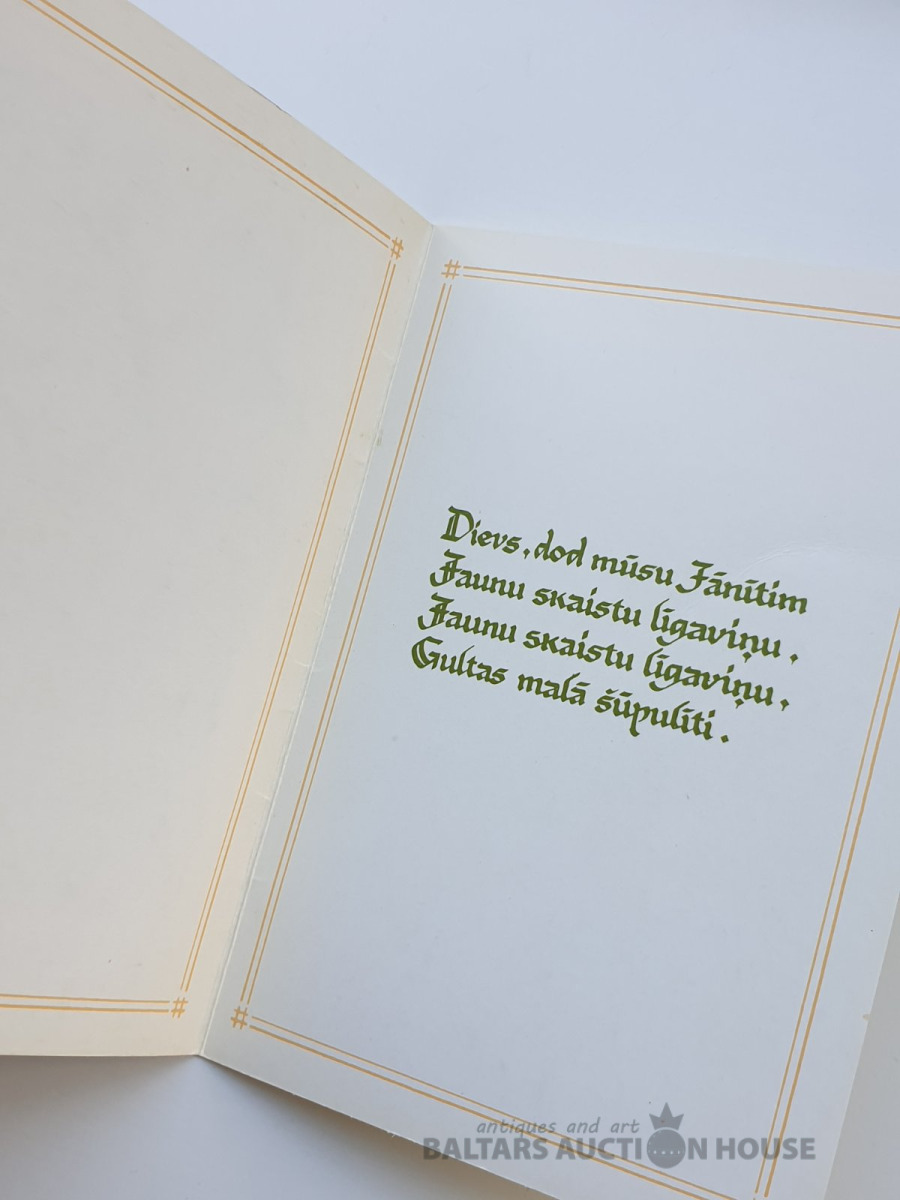 Dievs, dod mūsu Jānītim
Jaunu skaistu līgaviņu,
Jaunu skaistu līgaviņu,
Gultas malā šūpulīti.
antiques and art
BALTARS AUCTION HOUSE